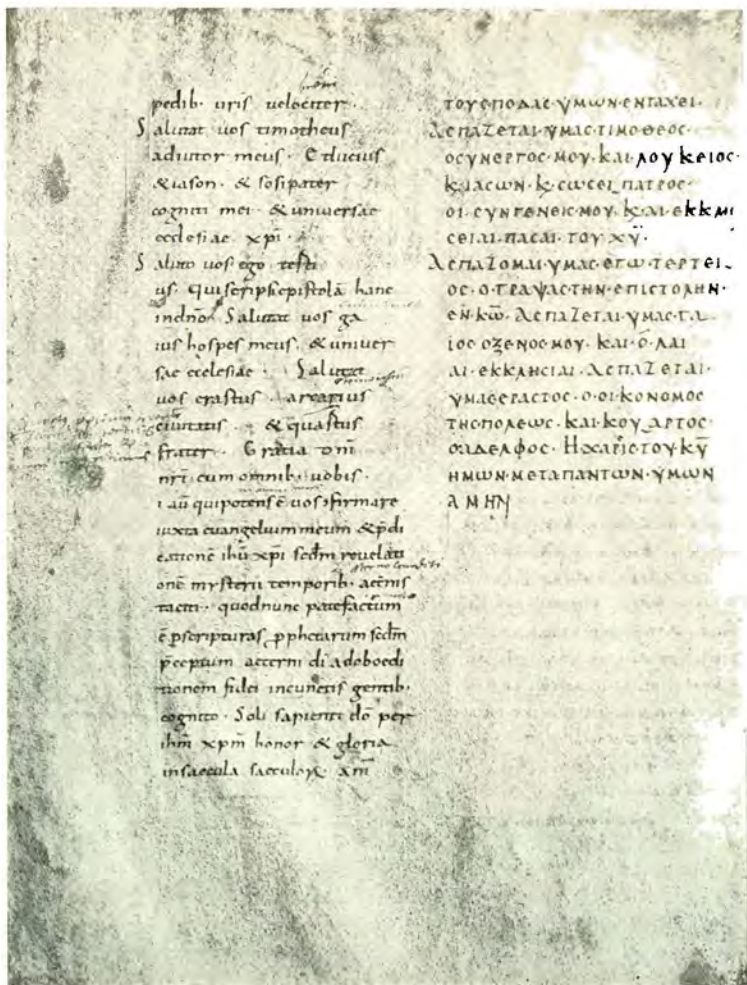 pedib· uris uelociter·
Salutat uos timotheus
adiutor meus· Et lucius
& iason· & sosipater
cogniti mei· & uniuersae
ecclesiae xpi·
Saluto uos ego terti
us· qui scripsi epistolā hanc
in dnō· Salutat uos ga
ius hospes meus· & uniuer
sae ecclesiae· Salutat
uos erastus· arcarius
ciuitatis· & quartus
frater· Gratia dni
nri· cum omnib· uobis·
i aū qui potens ē uos ɔfirmare
iuxta euangelium meum & p̄di
cationē ihū xpi scdm reuelati
onē mysterii temporib· aeternis
taciti· quod nunc patefactum
ē p scripturas pphetarum scdm
p̄ceptum aeterni di ad oboedi
tionem fidei in cunctis gentib·
cognito· Soli sapienti dō per
ihm xpm honor & gloria
in saecula saeculoꝝ am̄
ΤΟΥС ΠΟΔΑС·ΥΜΩΝ·ΕΝ ΤΑΧΕΙ·
ΑСΠΑΖΕΤΑΙ·ΥΜΑС·ΤΙΜΟΘΕΟС·
Ο СΥΝΕΡΓΟС·ΜΟΥ·ΚΑΙ·ΛΟΥΚΕΙΟС·
Κ ΙΑСΩΝ·Κ СΩСΕΙΠΑΤΡΟС·
ΟΙ·СΥΝΓΕΝΕΙС·ΜΟΥ·ΚΑΙ·ΕΚΚΛΗ
СΕΙΑΙ·ΠΑСΑΙ·ΤΟΥ ΧΥ·
ΑСΠΑΖΟΜΑΙ·ΥΜΑС·ΕΓΩ·ΤΕΡΤΕΙ
ΟС·Ο ΓΡΑΨΑС·ΤΗΝ·ΕΠΙСΤΟΛΗΝ·
ΕΝ ΚΩ·ΑСΠΑΖΕΤΑΙ·ΥΜΑС·ΓΑ
ΙΟС Ο ΞΕΝΟС·ΜΟΥ·ΚΑΙ·Ο·ΛΑΙ
ΑΙ·ΕΚΚΛΗСΙΑΙ·ΑСΠΑΖΕΤΑΙ·
ΥΜΑС ΕΡΑСΤΟС·Ο·ΟΙΚΟΝΟΜΟС
ΤΗС ΠΟΛΕΩС·ΚΑΙ·ΚΟΥΑΡΤΟС·
Ο ΑΔΕΛΦΟС·Η ΧΑΡΙС ΤΟΥ ΚΥ
ΗΜΩΝ·ΜΕΤΑ ΠΑΝΤΩΝ·ΥΜΩΝ
ΑΜΗΝ